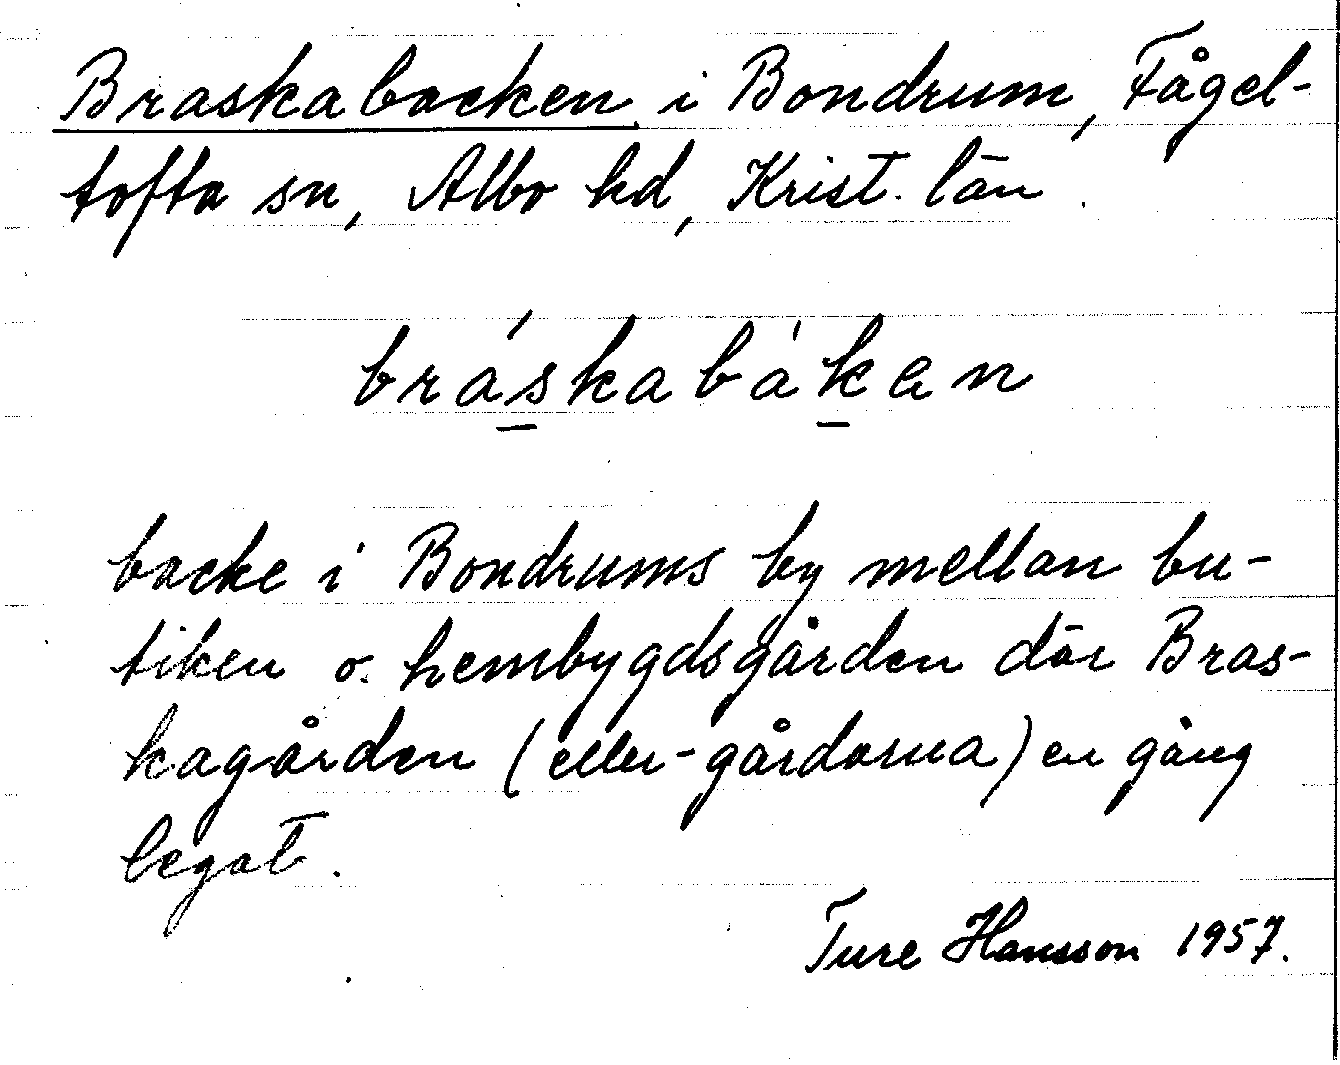 Braskabacken i Bondrum, Fågel-
tofta sn, Albo hd, Krist. län.
bráskabákan
backe i Bondrums by mellan bu-
tiken o. hembygdsgården där Bras-
kagården (eller -gårdarna) en gång
legat.
Ture Hansson 1957.